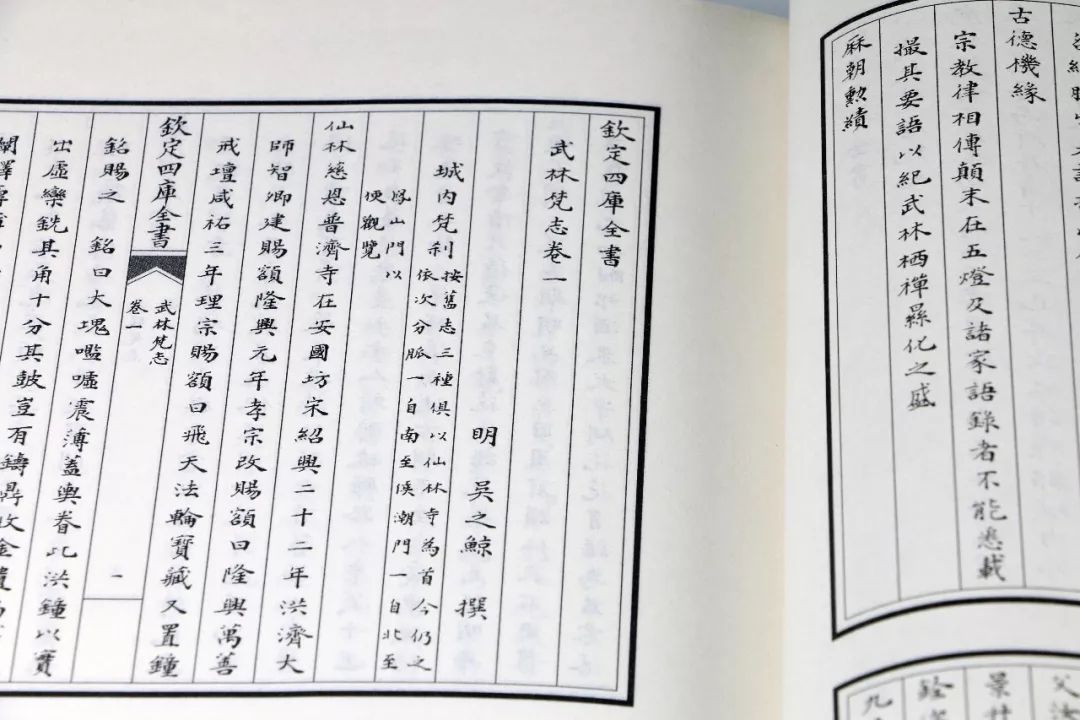 古德機緣
宗教律相傳顛末在五燈及諸家語錄者不能悉載
撮其要語以紀武林栖禪化之盛
厤朝勲績
九
欽定四庫全書
武林梵志卷一
明 吳之鯨 撰
城内梵刹
按舊志三種俱以仙林寺為首今仍之
依次分脈一自南至候潮門一自北至
鳳山門以
便觀覽
仙林慈恩普濟寺在安國坊宋紹興二十二年洪濟大
師智卿建賜額隆興元年孝宗改賜額曰隆興萬善
戒壇咸祐三年理宗賜額曰飛天法輪寶藏又置鐘
欽定四庫全書
武林梵志
卷一
一
銘賜之 銘曰大塊噫嘘震薄蓋輿眷此洪鐘以寶
出虛欒銑其角十分其鼓豈有鑄鼎收金